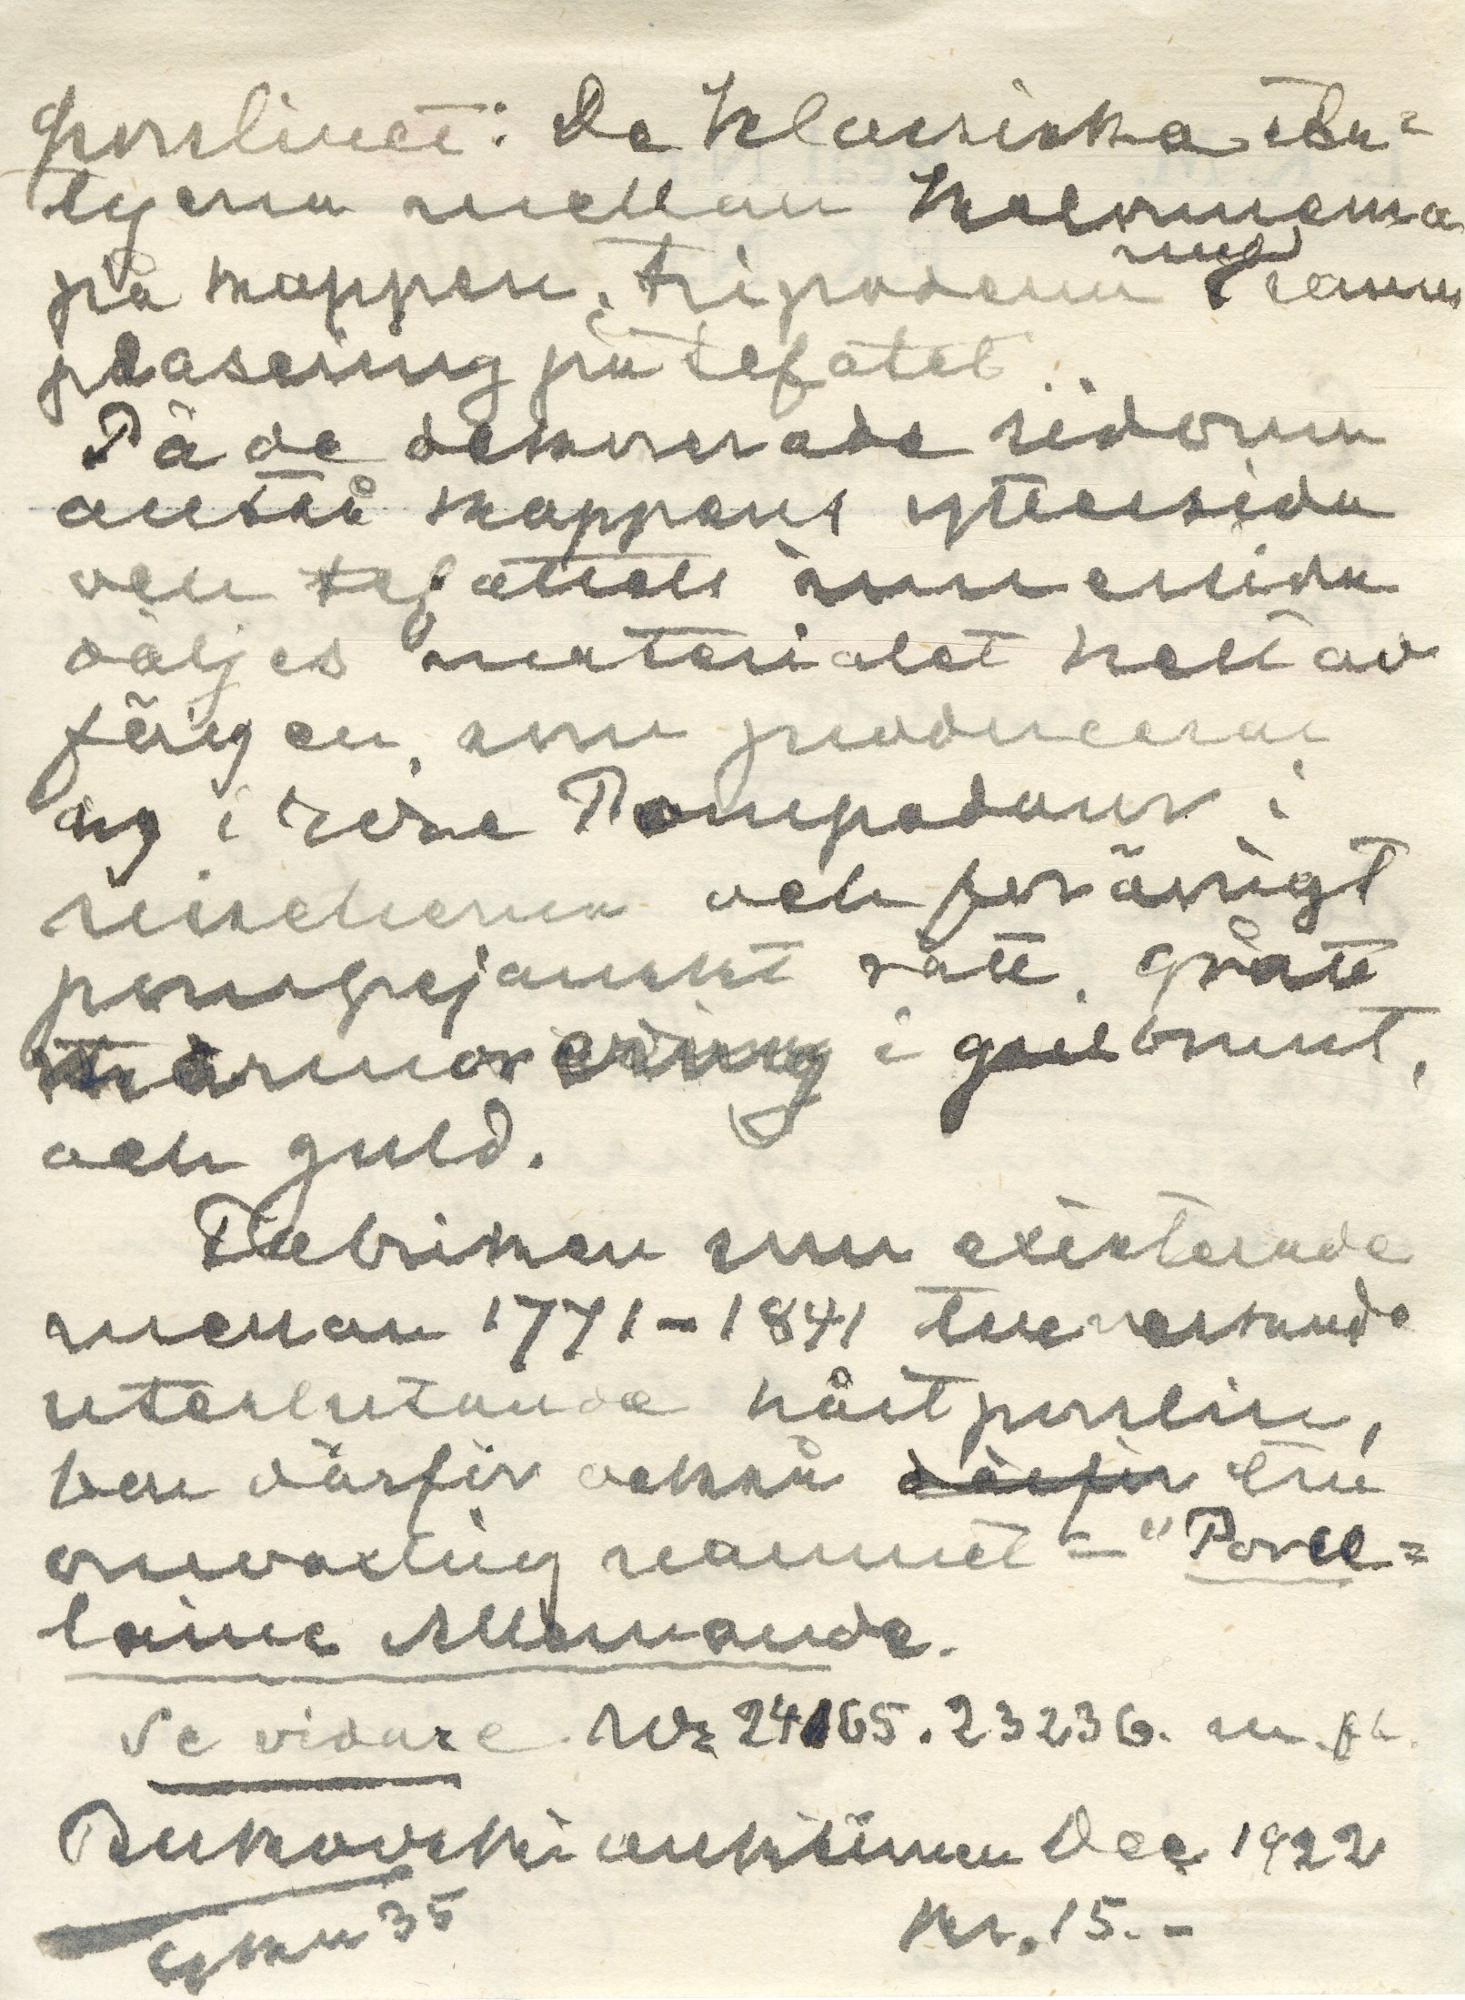 porslinet: De klassiska sta=
tyerna mellan kolonnerna
på koppen, tripoden med ranm
plasering på tefatet.
På de dekorerade sidorna
alltså koppens yttersida
och tefatets innersida
döljes materialet helt av
färgen, som producerar
sig i rosa Pompadour i
nischerna och för övrigt
pompejanskt rött, grått
marmorering i gulbrunt,
och guld.
Fabriken som existerade
mellan 1771-1841 tillverkade
uteslutande hårtporslin,
bar därför också därför till
omväxling namnet - "Porce=
laine Allemande.
Se vidare Nr 24165. 23236. m. fl.
Bukovski auktionen Dec 1922
35
Kr. 15.-